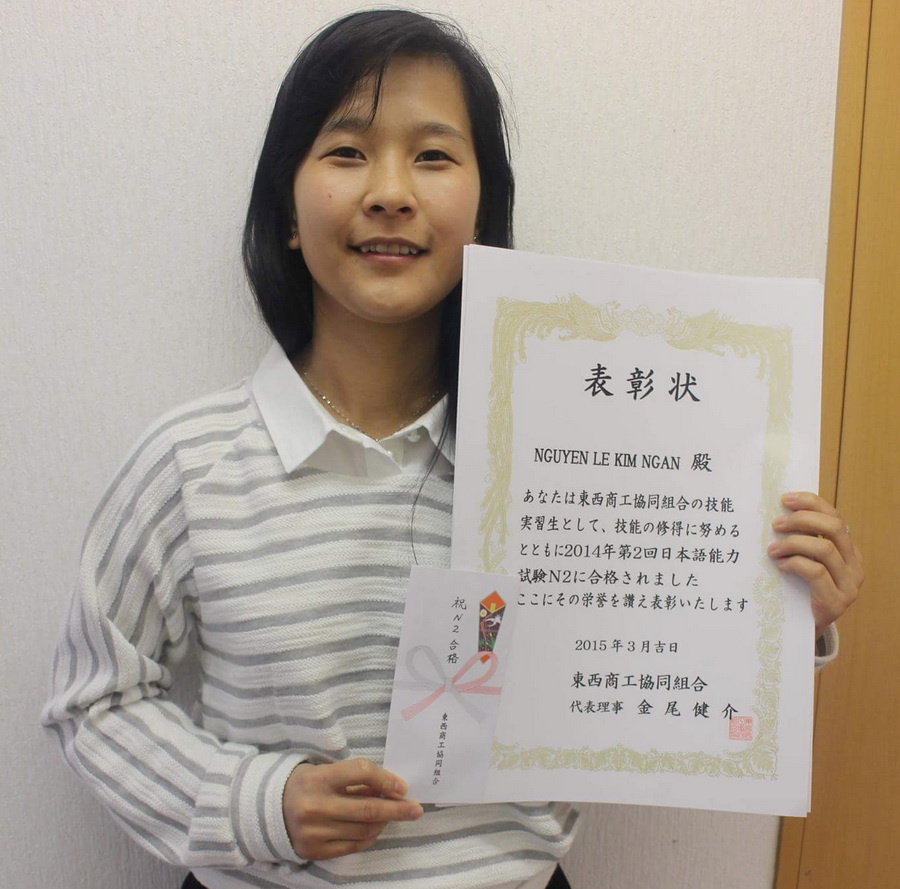 表彰状
NGUYEN LE KIM NGAN 殿
あなたは東西商工協同組合の技能
実習生として、技能の修得に努める
とともに2014年第2回日本語能力
試験N2に合格されました
ここにその栄誉を讃え表彰いたします
2015年3月吉日
東西商工協同組合
代表理事 金尾健介
祝N2合格
東西商工協同組合